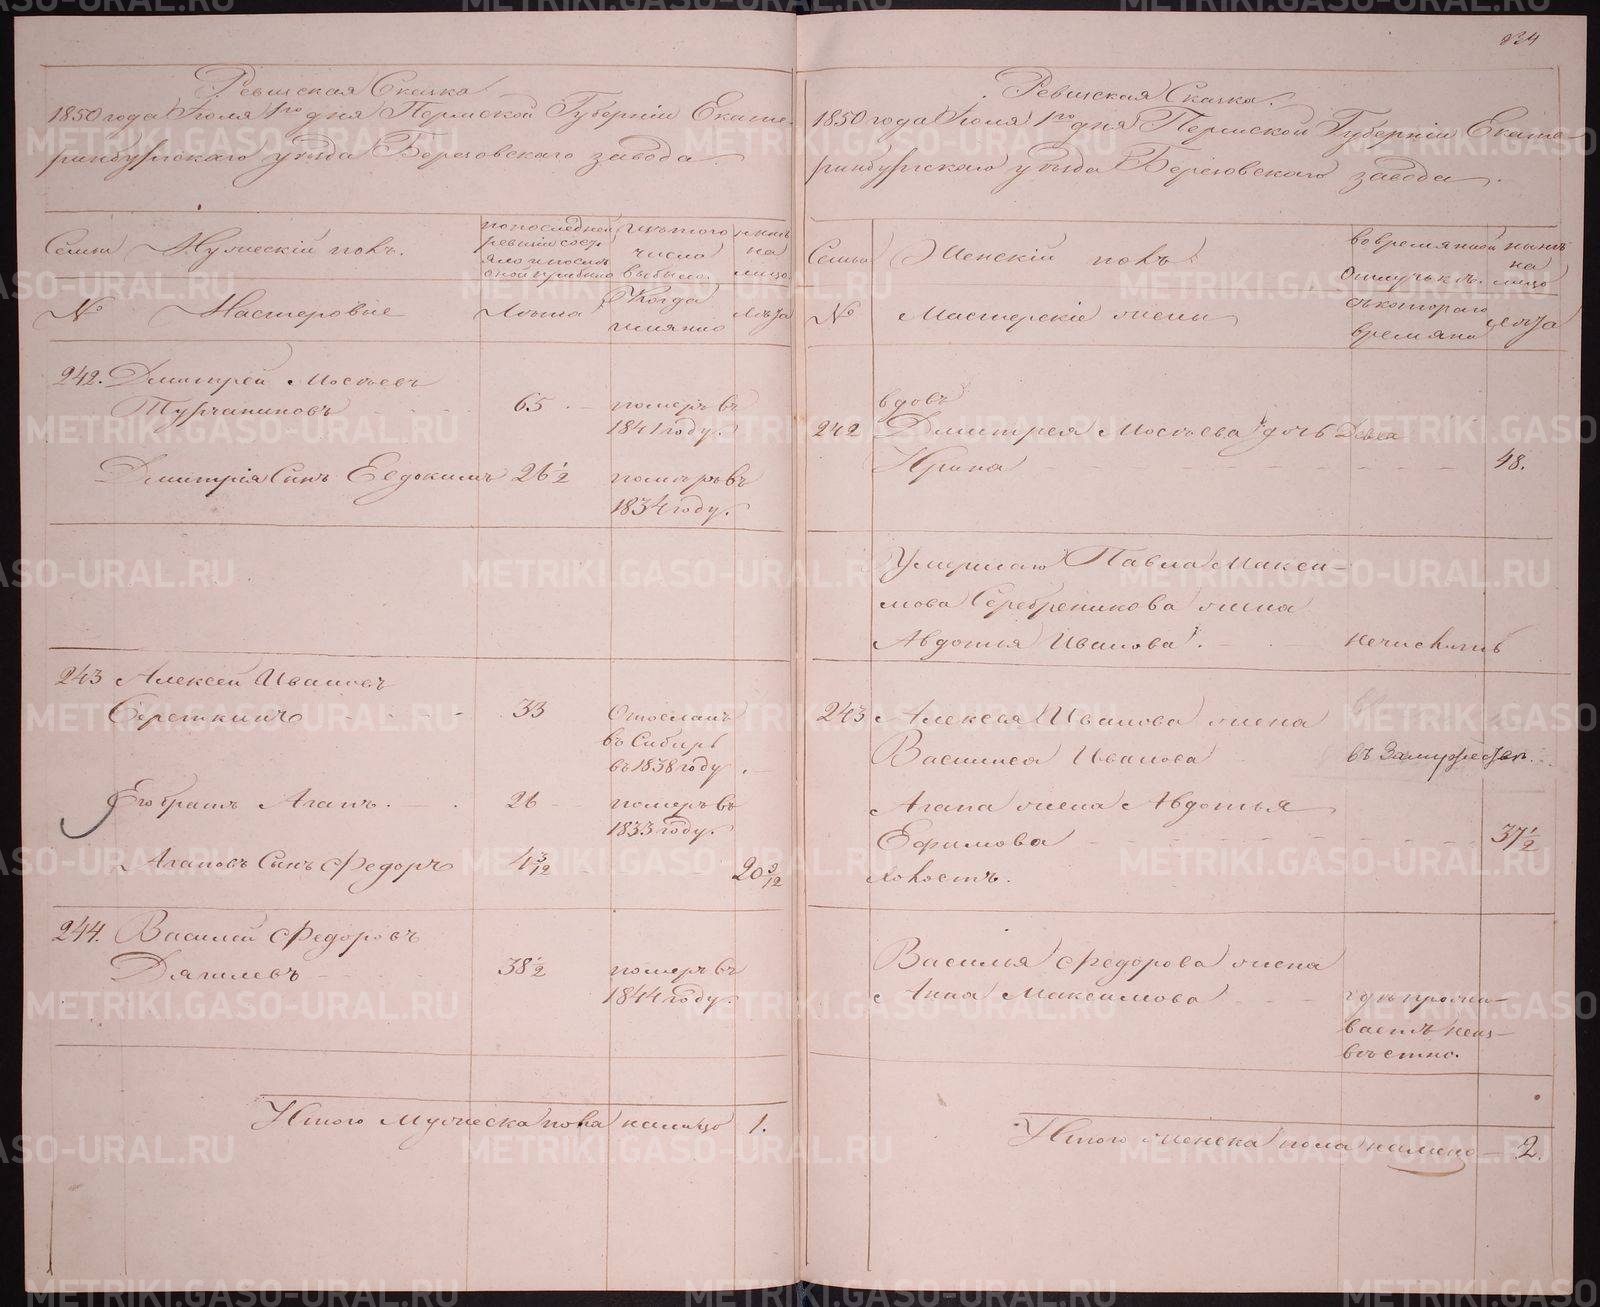 234
Ревизская Сказка
1850 года Іюля 1го дня Пермской Губерніи Екате-
ринбургскаго уѣзда Березовскаго завода.
Семьи
Мужескій полъ.
по последней
ревизіи состо
яло и послѣ
оной прибыло
изъ того
числа
выбыло.
нынѣ
на
лицо
№
Мастеровые
Лѣта
Когда
имянно
Лѣта
242. Дмитрей Мосѣевъ
Турчаниновъ 65 померъ въ
1841 году.
Дмитрія Сынъ Евдокимъ 26 1/2 померъ въ
1834 году.
243 Алексей Ивановъ
33 Отосланъ
въ Сибирь
въ 1838 году.
Его братъ Агапъ. 26 померъ въ
1833 году.
Агаповъ Сынъ Федоръ 4 3/12 20 9/12
244. Василей Федоровъ
Дягилевъ 38 1/2 померъ въ
1844 году.
Итого Мужеска пола налицо 1.
Ревизская Сказка.
1850 года Іюля 1го дня Пермской Губерніи Екате-
ринбургскаго уѣзда Березовскаго завода.
Семьи
Женскій полъ
во временной
отлучкѣ.
нынѣ
на
лицо
№
Мастерскіе жены
съ котораго
времяни
лѣта
вдовъ
242 Дмитрея Мосѣева дочь Девка
Ирина 48.
Умершаго Павла Макси-
мова Серебреникова жена
Авдотья Иванова. не числитъ
243 Алексѣя Иванова жена
Василиса Иванова въ Замужестве.
Агапа жена Авдотья
Ефимова 37 1/2
Василья Федорова жена
Анна Максимова гдѣ прожи-
ваетъ неиз-
вѣстно.
Итого женска пола налицо 2.
METRIKI.GASO-URAL.RU